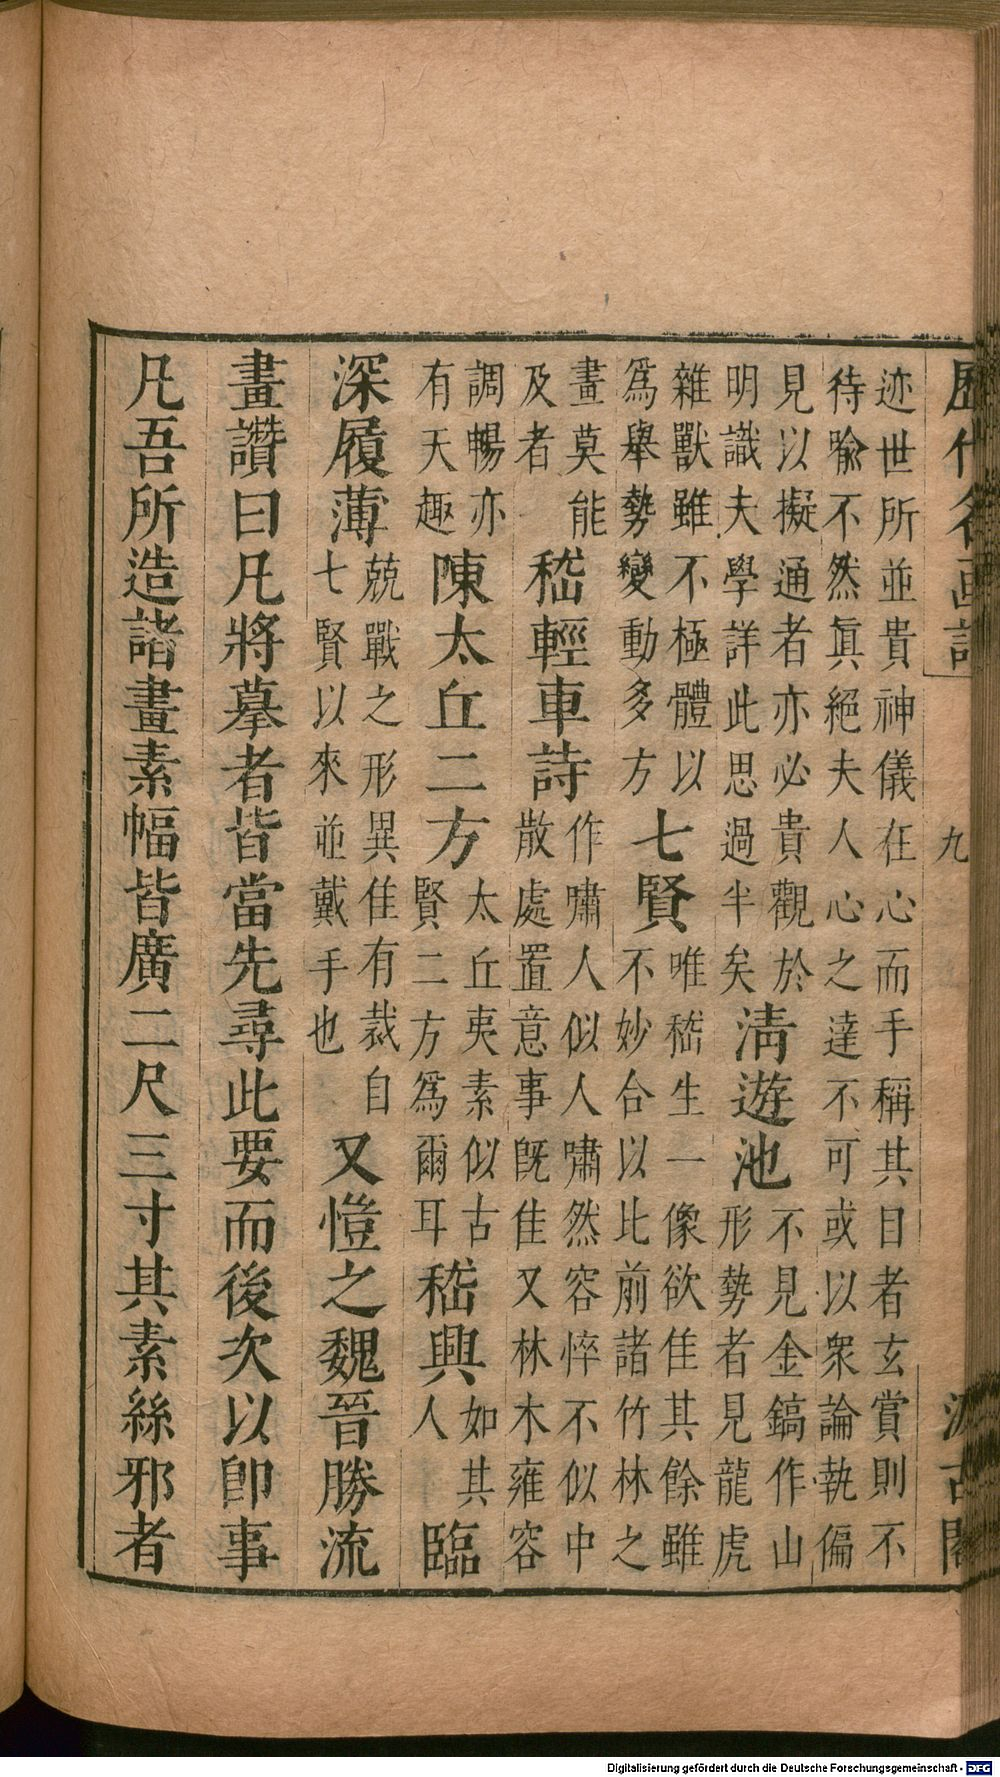 歷代名画記 九 汲古閣
迹世所並貴神儀在心而手稱其目者玄賞則不
待喻不然眞絕夫人心之達不可或以衆論執偏
見以擬通者亦必貴觀於
明識夫學詳此思過半矣
淸遊池
不見金鎬作山
形勢者見龍虎
雜獸雖不極體以
爲舉勢變動多方
七賢
唯嵇生一像欲佳其餘雖
不妙合以比前諸竹林之
畫莫能
及者
嵇輕車詩
作嘯人似人嘯然容悴不似中
散處置意事旣佳又林木雍容
調暢亦
有天趣
陳太丘二方
太丘夷素似古
賢二方爲爾耳
嵇興
如其
人
臨
深履薄
兢戰之形異佳有裁自
七賢以來並戴手也
又愷之魏晉勝流
畫讚曰凡將摹者皆當先尋此要而後次以卽事
凡吾所造諸畫素幅皆廣二尺三寸其素絲邪者
Digitalisierung gefördert durch die Deutsche Forschungsgemeinschaft - DFG